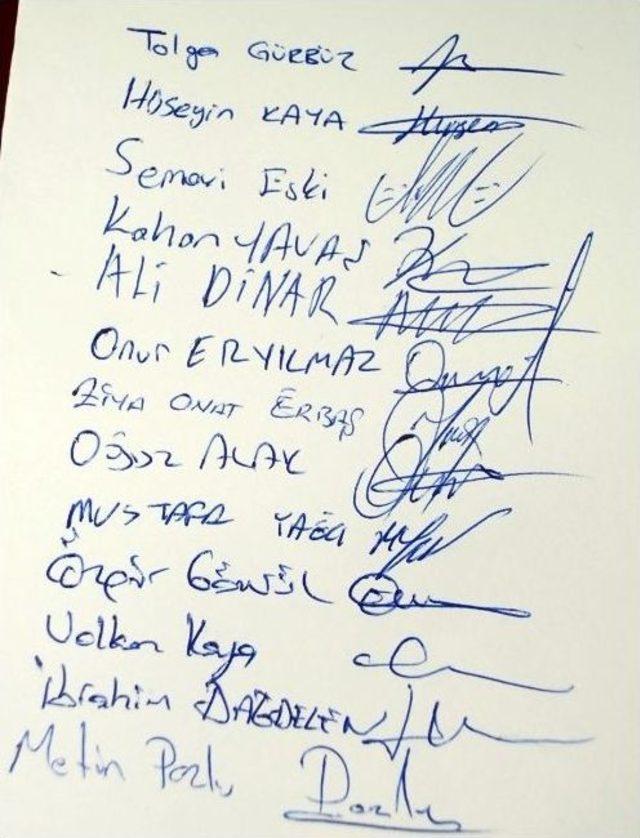 Tolga GÜRBÜZ
Hüseyin KAYA
Semavi Eski
Kahan YAVAŞ
ALİ DİNAR
Onur ERYILMAZ
ZİYA ONAT ERBAŞ
Oğuz ALAK
MUSTAFA YAĞCI
Özgür GÖNÜL
Volkan Kaya
İbrahim DAĞDELEN
Metin Pozlu